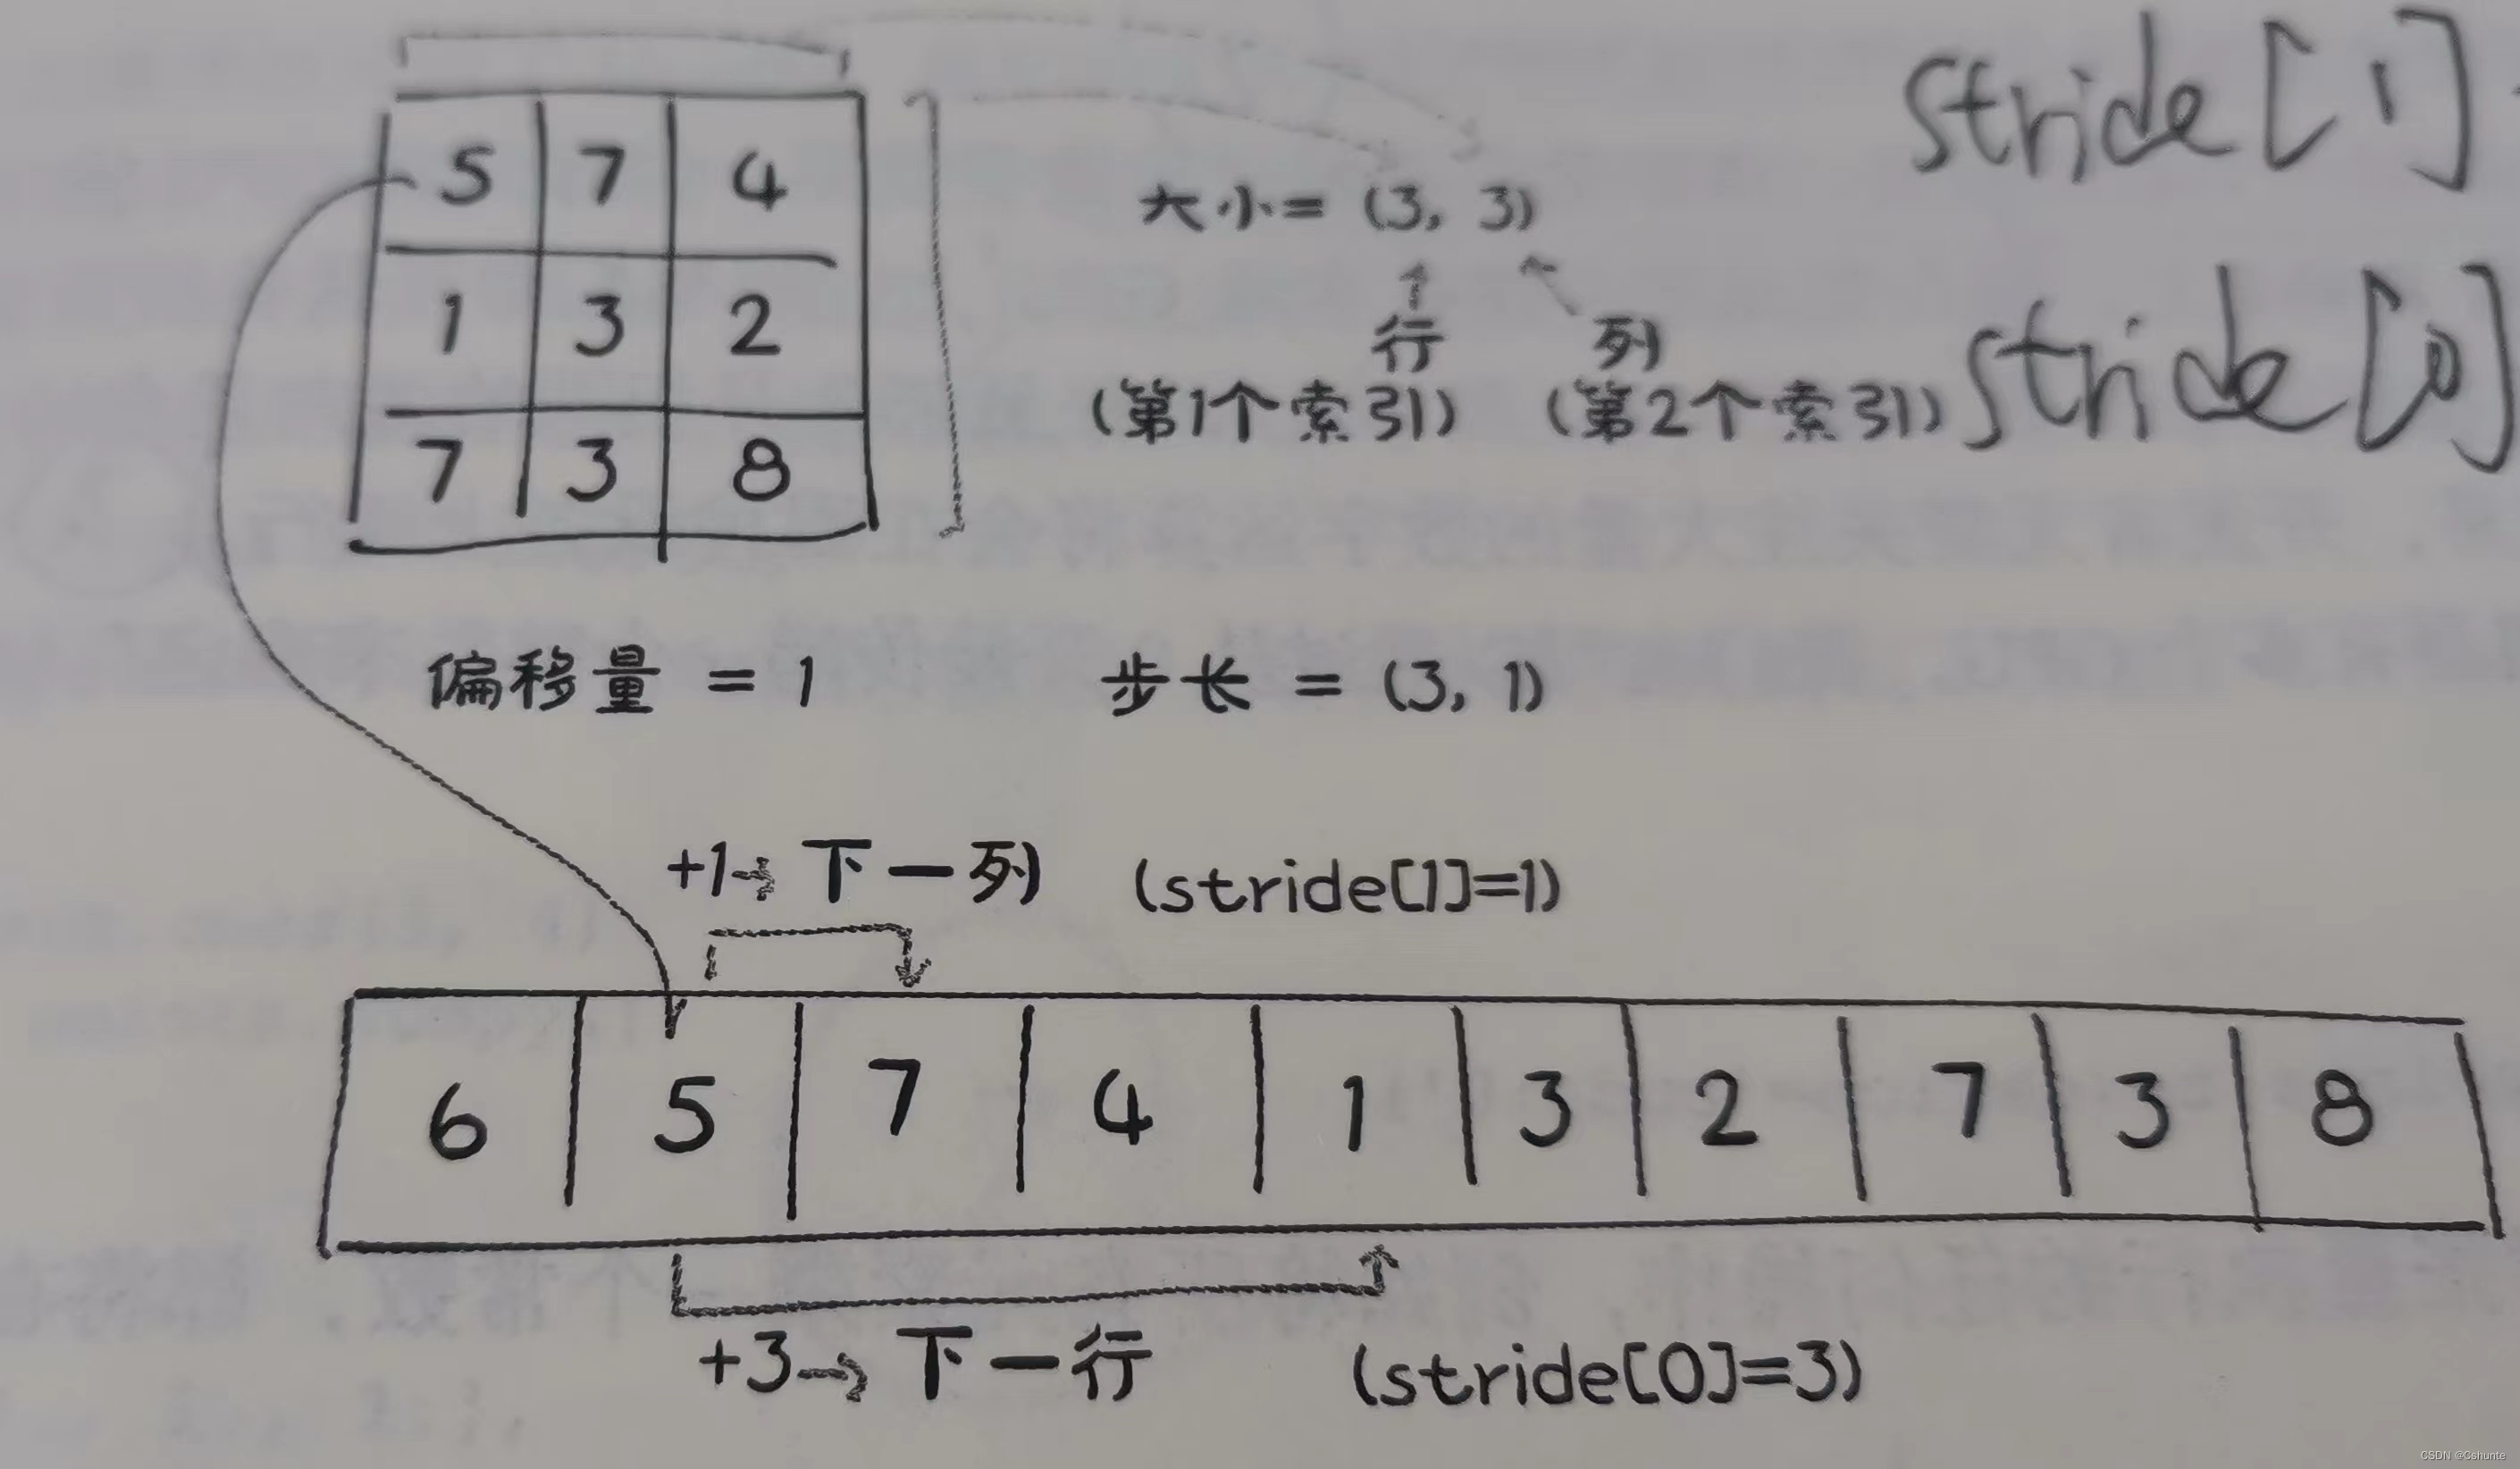 stride[1]
5 7 4
大小= (3, 3)
1 3 2
行 列
(第1个索引) (第2个索引) stride[0]
7 3 8
偏移量 = 1 步长 = (3, 1)
+1→ 下一列 (stride[1]=1)
6 5 7 4 1 3 2 7 3 8
+3→ 下一行 (stride[0]=3)
CSDN @Cshunte